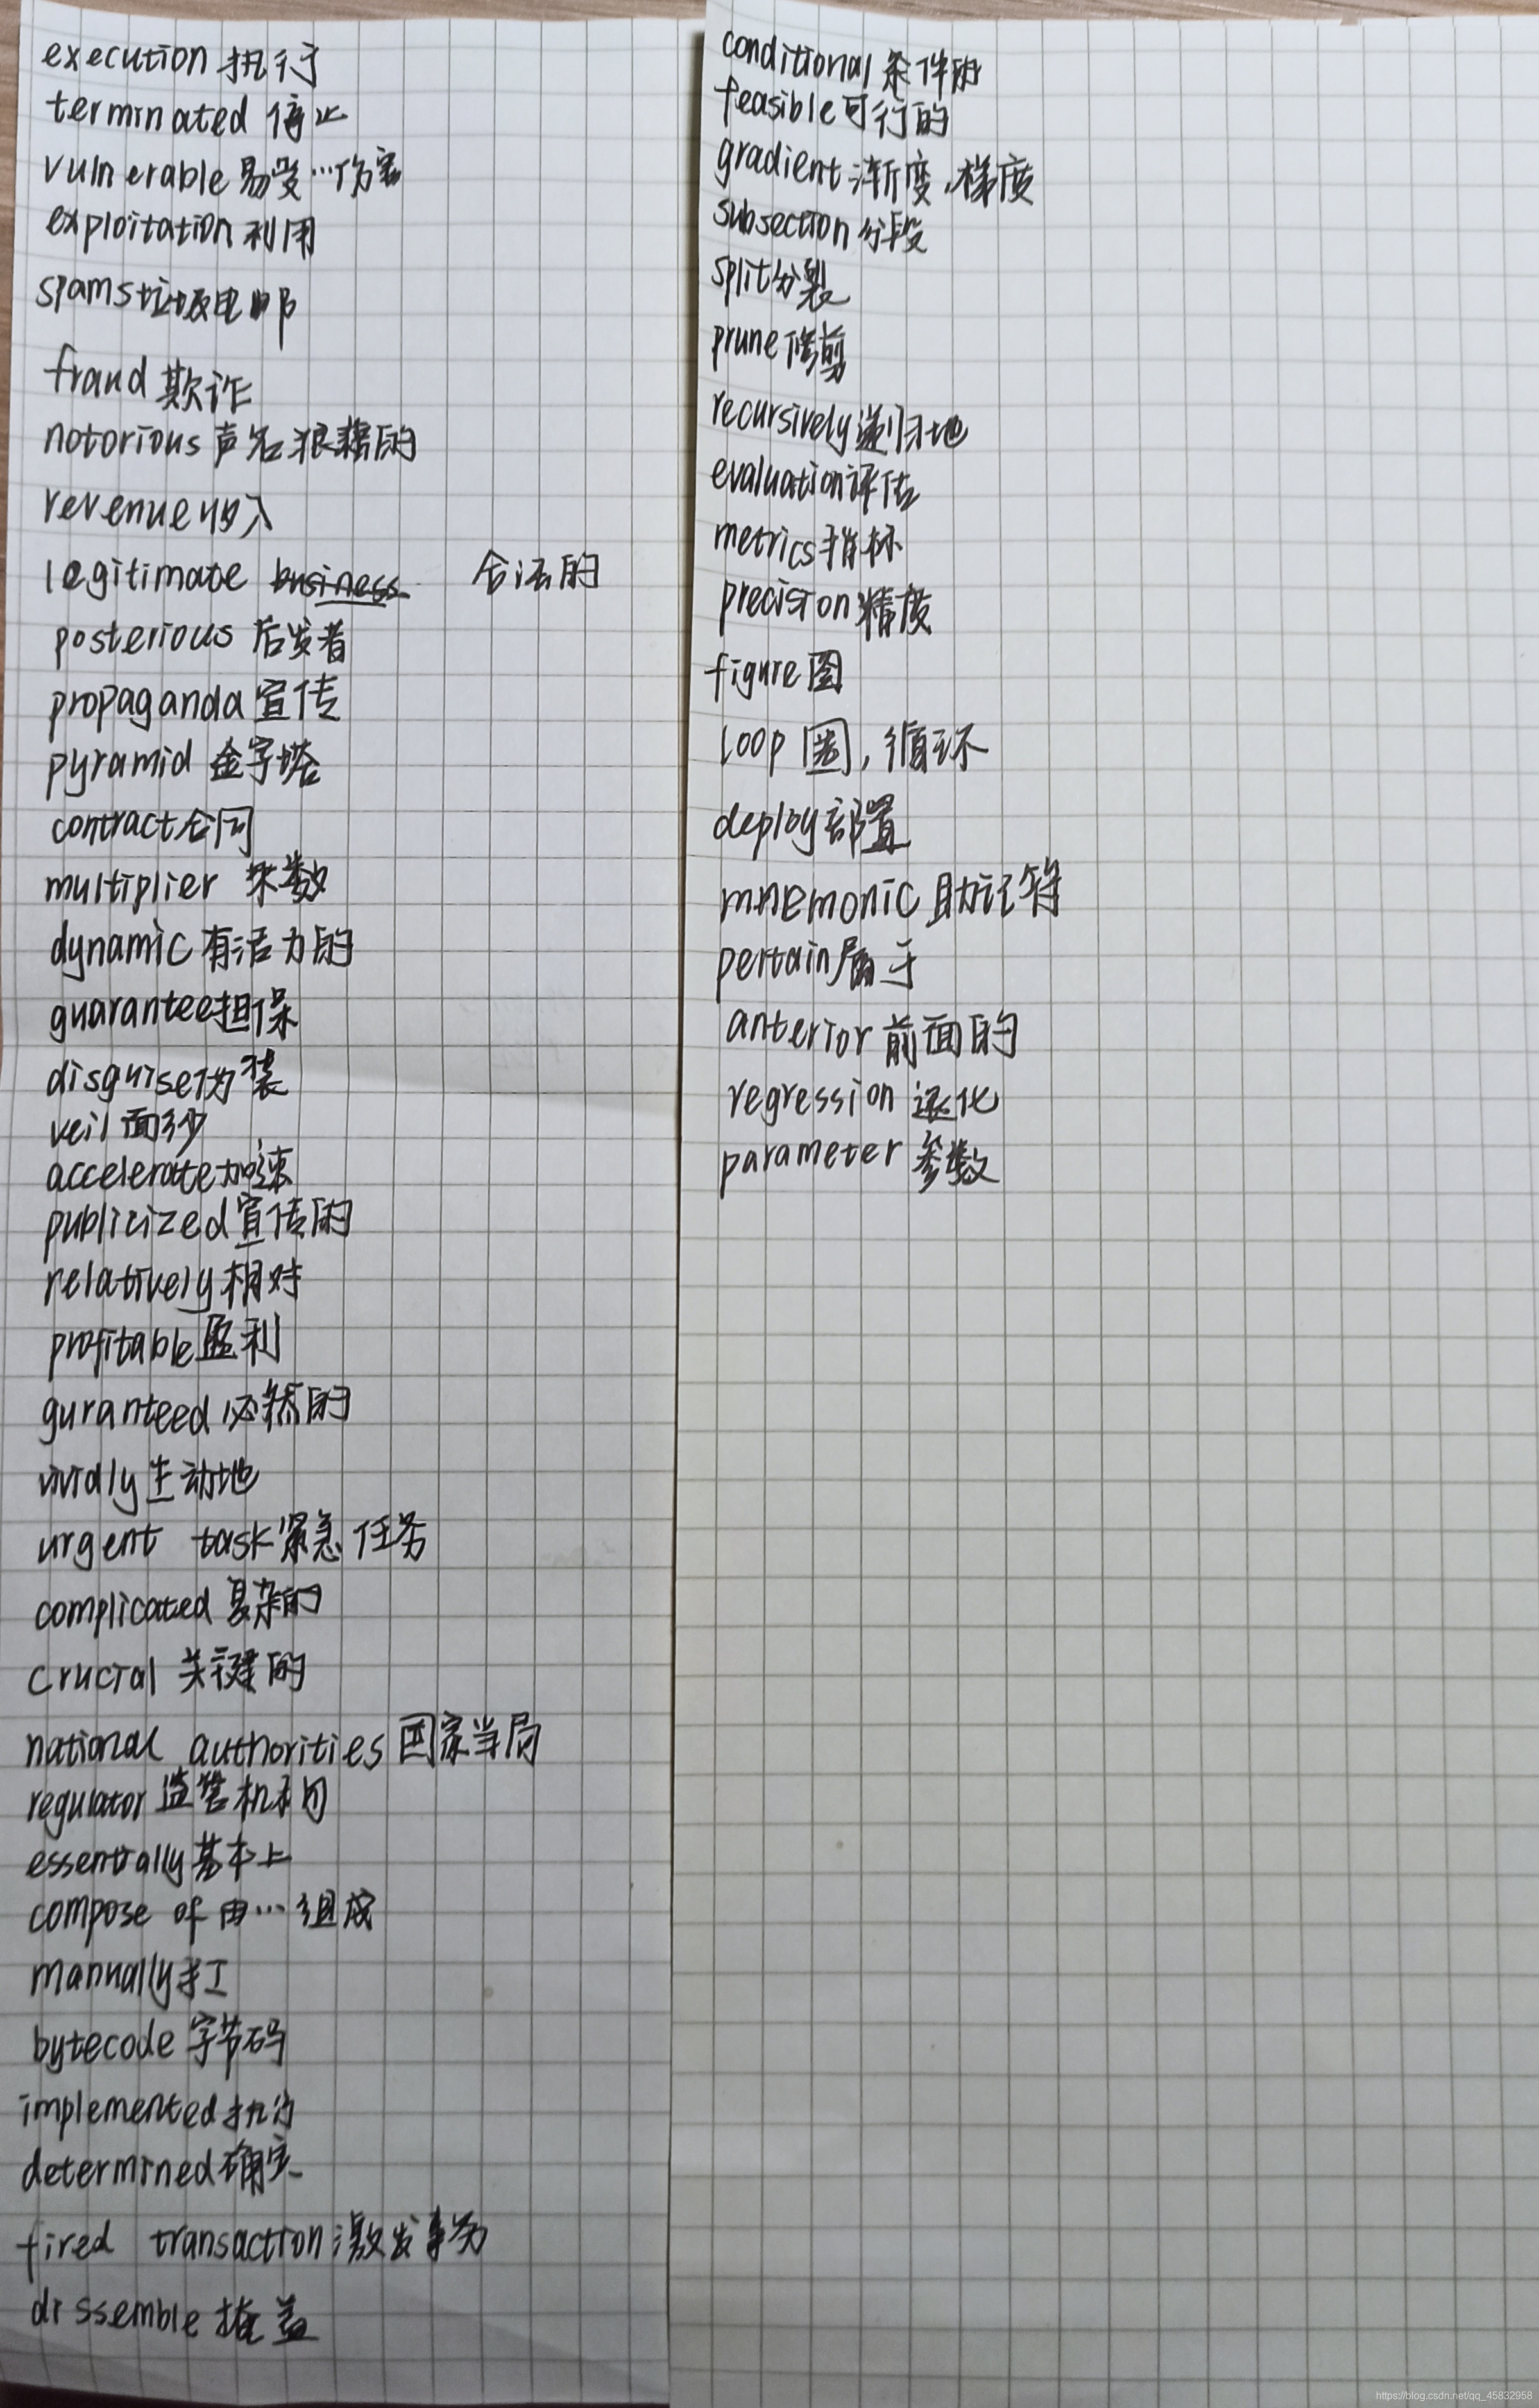 execution 执行
terminated 停止
vulnerable 易受…伤害
exploitation 利用
spams 垃圾电邮
fraud 欺诈
notorious 声名狼藉的
revenue 收入
legitimate business 合法的
posterious 后发者
propaganda 宣传
pyramid 金字塔
contract 合同
multiplier 乘数
dynamic 有活力的
guarantee 担保
disguise 伪装
veil 面纱
accelerate 加速
publicized 宣传的
relatively 相对
profitable 盈利
guranteed 必然的
vividly 生动地
urgent task 紧急任务
complicated 复杂的
crucial 关键的
national authorities 国家当局
regulator 监管机构
essentially 基本上
compose of 由…组成
manually 手工
bytecode 字节码
implemented 执行
determined 确定
fired transaction 激发事务
dissemble 掩盖
conditional 条件的
feasible 可行的
gradient 渐变,梯度
subsection 分段
split 分裂
prune 修剪
recursively 递归地
evaluation 评估
metrics 指标
precision 精度
figure 图
loop 圈,循环
deploy 部署
mnemonic 助记符
pertain 属于
anterior 前面的
regression 退化
parameter 参数
https://blog.csdn.net/qq_45832958